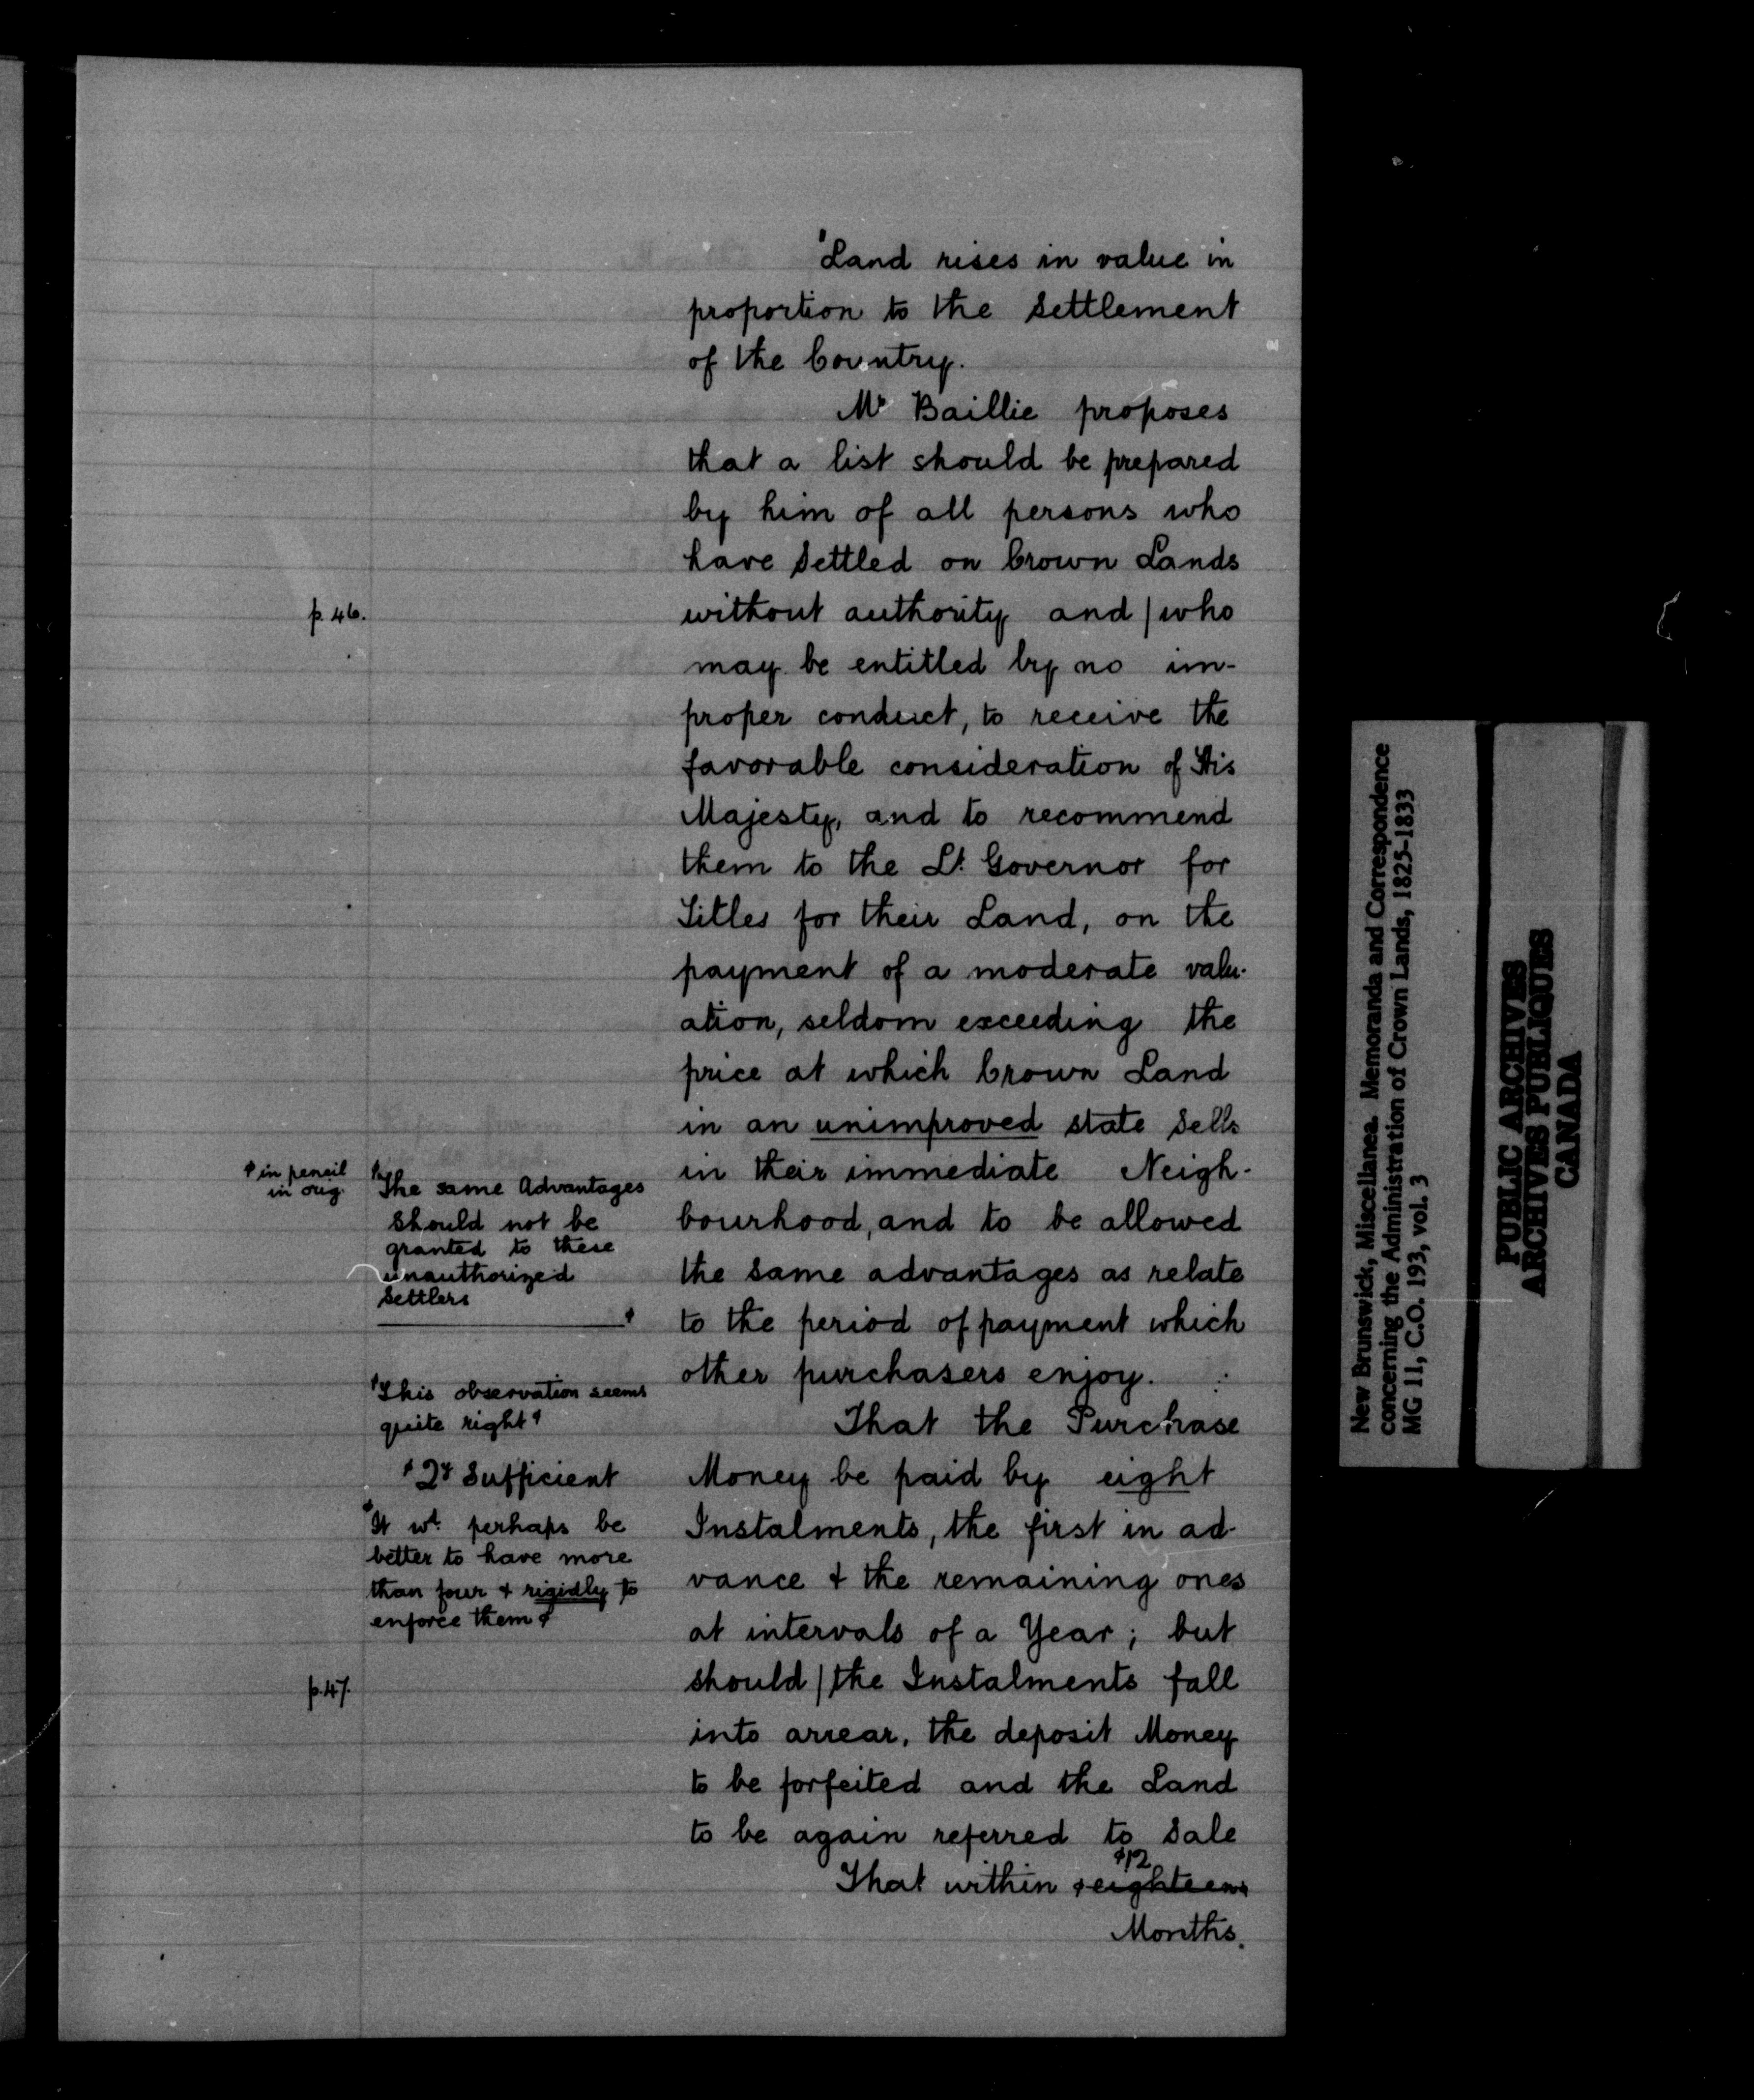 "Land rises in value in
proportion to the Settlement
of the Country.
Mr Baillie proposes
that a list should be prepared
by him of all persons who
have Settled on Crown Lands
p. 46.
without authority and | who
may be entitled by no im-
proper conduct, to receive the
favorable consideration of His
Majesty, and to recommend
them to the Lt. Governor for
Titles for their Land, on the
payment of a moderate valu-
ation, seldom exceeding the
price at which Crown Land
in an unimproved state Sells
in their immediate Neigh-
bourhood, and to be allowed
the Same advantages as relate
to the period of payment which
other purchasers enjoy.
That the Purchase
Money be paid by eight
Instalments, the first in ad-
vance & the remaining ones
at intervals of a Year; but
should | the Instalments fall
into arrear, the deposit Money
to be forfeited and the Land
to be again referred to Sale
12
That within eighteen
Months.
in pencil
in orig.
The same Advantages
Should not be
granted to these
unauthorized
Settlers
This observation seems
quite right
Sufficient
It wd. perhaps be
better to have more
than four & rigidly to
enforce them
p. 47.
New Brunswick, Miscellanea. Memoranda and Correspondence
concerning the Administration of Crown Lands, 1825-1833
MG 11, C.O. 193, vol. 3
PUBLIC ARCHIVES
ARCHIVES PUBLIQUES
CANADA